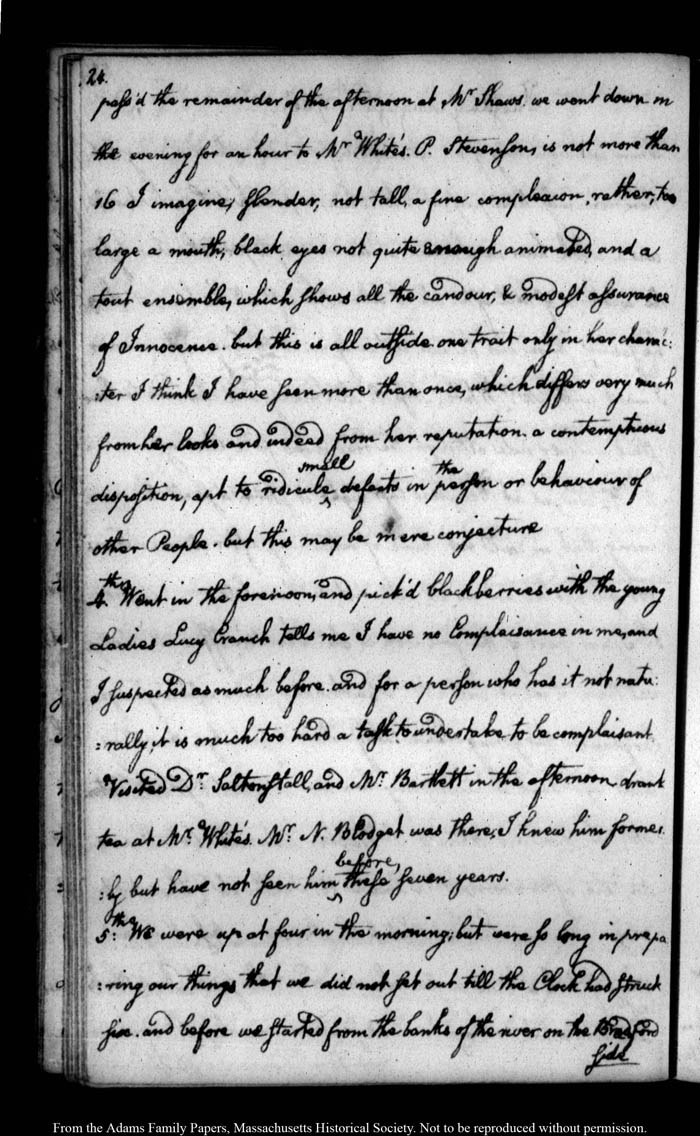 24.
pass'd the remainder of the afternoon at Mr Shaws. we went down in
the evening for an hour to Mr White's. P. Stevenson, is not more than
16 I imagine; slender, not tall, a fine complexion, rather, too
large a mouth, black eyes not quite enough animated, and a
tout ensemble, which shows all the candour, & modest assurance
of Innocence. but this is all outside. one trait only in her charac:
:ter I think I have seen more than once, which differs very much
from her looks and indeed from her reputation. a contemptuous
disposition, apt to ridicule ^ small defects in the person or behaviour of
other People. but this may be mere conjecture
4th. Went in the forenoon, and pick'd blackberries with the young
Ladies Lucy Cranch tells me I have no Complaisance in me, and
I suspected as much before. and for a person who has it not natu:
:rally, it is much too hard a task to undertake to be complaisant.
Visited Dr. Saltonstall, and Mr. Bartlett in the afternoon, drank
tea at Mr. White's. Mr. N. Blodget was there, I knew him former
:ly but have not seen him ^ before, these seven years.
5th: We were up at four in the morning; but were so long in prepa
:ring our things that we did not set out till the Clock had struck
six. and before we started from the banks of the river on the Bradford
side
From the Adams Family Papers, Massachusetts Historical Society. Not to be reproduced without permission.